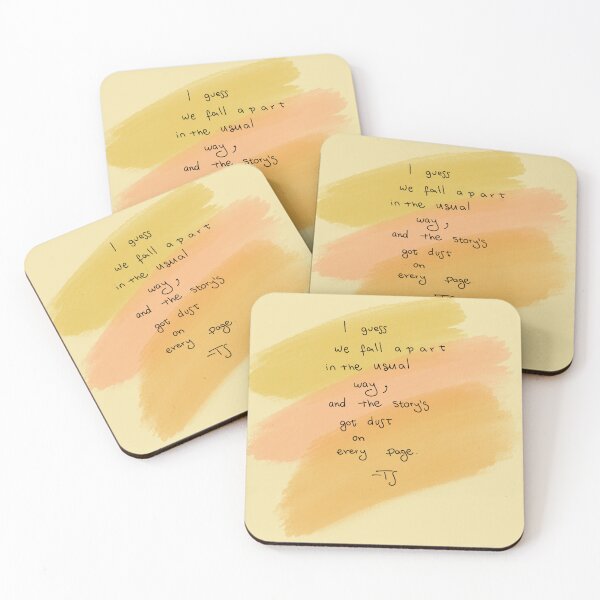 I guess
we fall apart
in the usual
way,
and the story's
I guess
we fall apart
in the usual
way,
and the story's
got dust
on
every page
-TJ
I guess
we fall apart
in the usual
way,
and the story's
got dust
on
every page
-TJ
I guess
we fall apart
in the usual
way,
and the story's
got dust
on
every page.
-TJ